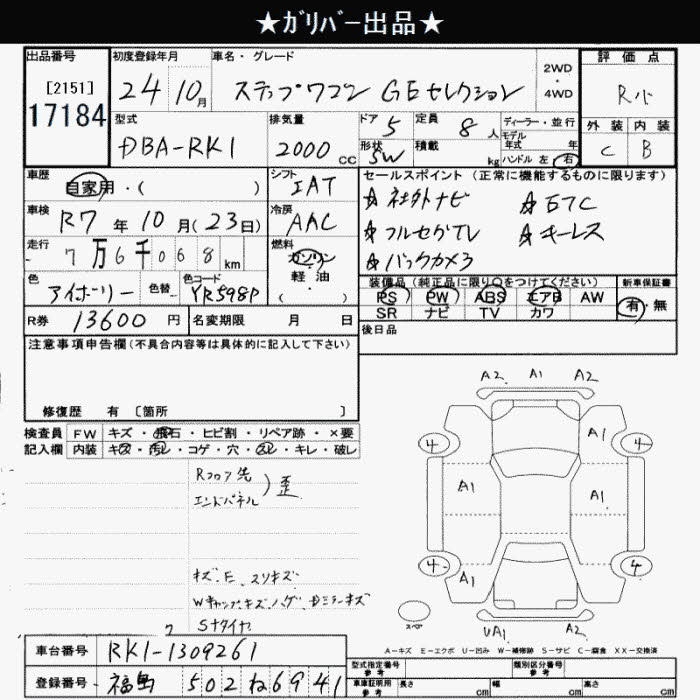 ★ガリバー出品★
出品番号 初度登録年月 車名・グレード 評価点
[2151] 24 10月 ステップワゴン GEセレクション 2WD・4WD R小
17184
型式 排気量 ドア 5 定員 8人 ディーラー・並行 外装 内装
DBA-RK1 2000cc 形状 SW 積載 kg モデル年式 年 ハンドル 左 右 C B
車歴 自家用・( ) シフト IAT セールスポイント(正常に機能するものに限ります)
車検 R7年10月(23日) 冷房 AAC ☆社外ナビ ☆ETC
走行 7万6千068km 燃料 ガソリン・軽油・( ) ☆フルセグTV ☆キーレス
☆バックカメラ
色 アイボリー 色替 色コード YR598P 装備品(純正品に限り○をつけてください) 新車保証書
PS PW ABS エアB AW 有・無
SR ナビ TV カワ
R券 13600円 名変期限 月 日 後日品
注意事項申告欄(不具合内容等は具体的に記入して下さい)
修復歴 有 [箇所 ]
検査員 FW キズ・飛石・ヒビ割・リペア跡・×要
記入欄 内装 キズ・汚レ・コゲ・穴・スレ・キレ・破レ
A2 A1 A2
4 A1 4
A1 A1
4 A1 4
UA1 A2
スペア
Rフロア先
エンドパネル )歪
キズ、E、スリキズ
Sナタイヤ
A－キズ E－エクボ U－凹み W－補修跡 S－サビ C－腐食 XX－交換済
車台番号 RK1-1309261 型式指定番号 参考 類別区分番号 参考
登録番号 福島 502ね6941 車庫証明用 参考 長さ cm 幅 cm 高さ cm